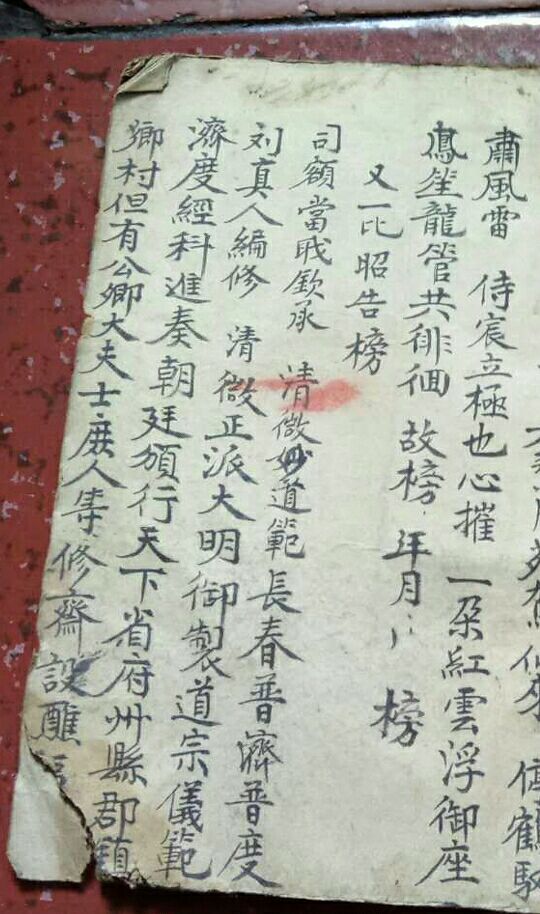 停鶴馭
肅風雷 侍宸立極也心摧 一朶紅雲浮御座
鳳笙龍管共徘徊 故榜 年月 榜
又一比昭告榜
司額當职欽承 清微妙道範長春普濟普度
刘真人編修 清微正派大明御製道宗儀範
濟度經科進奏朝廷頒行天下省府州縣郡鎮
鄉村但有公卿大夫士庶人等修齋設醮